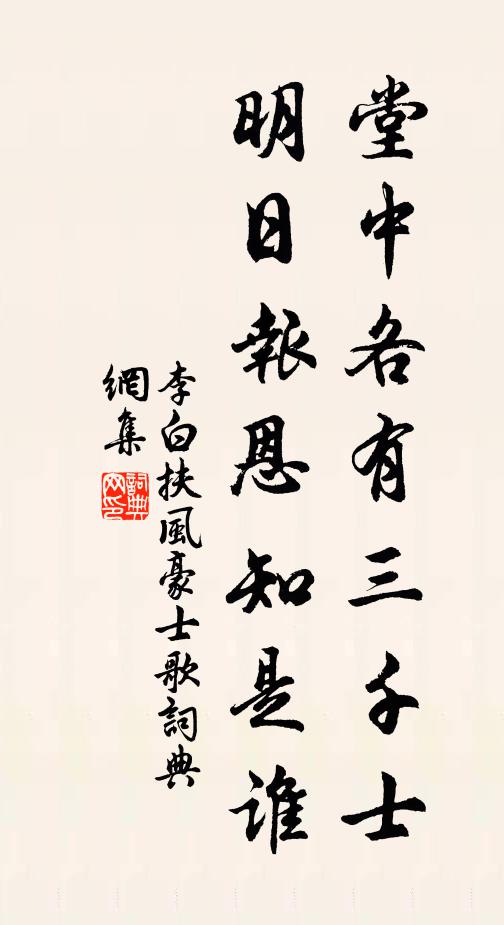 堂中各有三千士
明日報恩知是誰
李白扶風豪士歌詞典
網集
詞典
网印